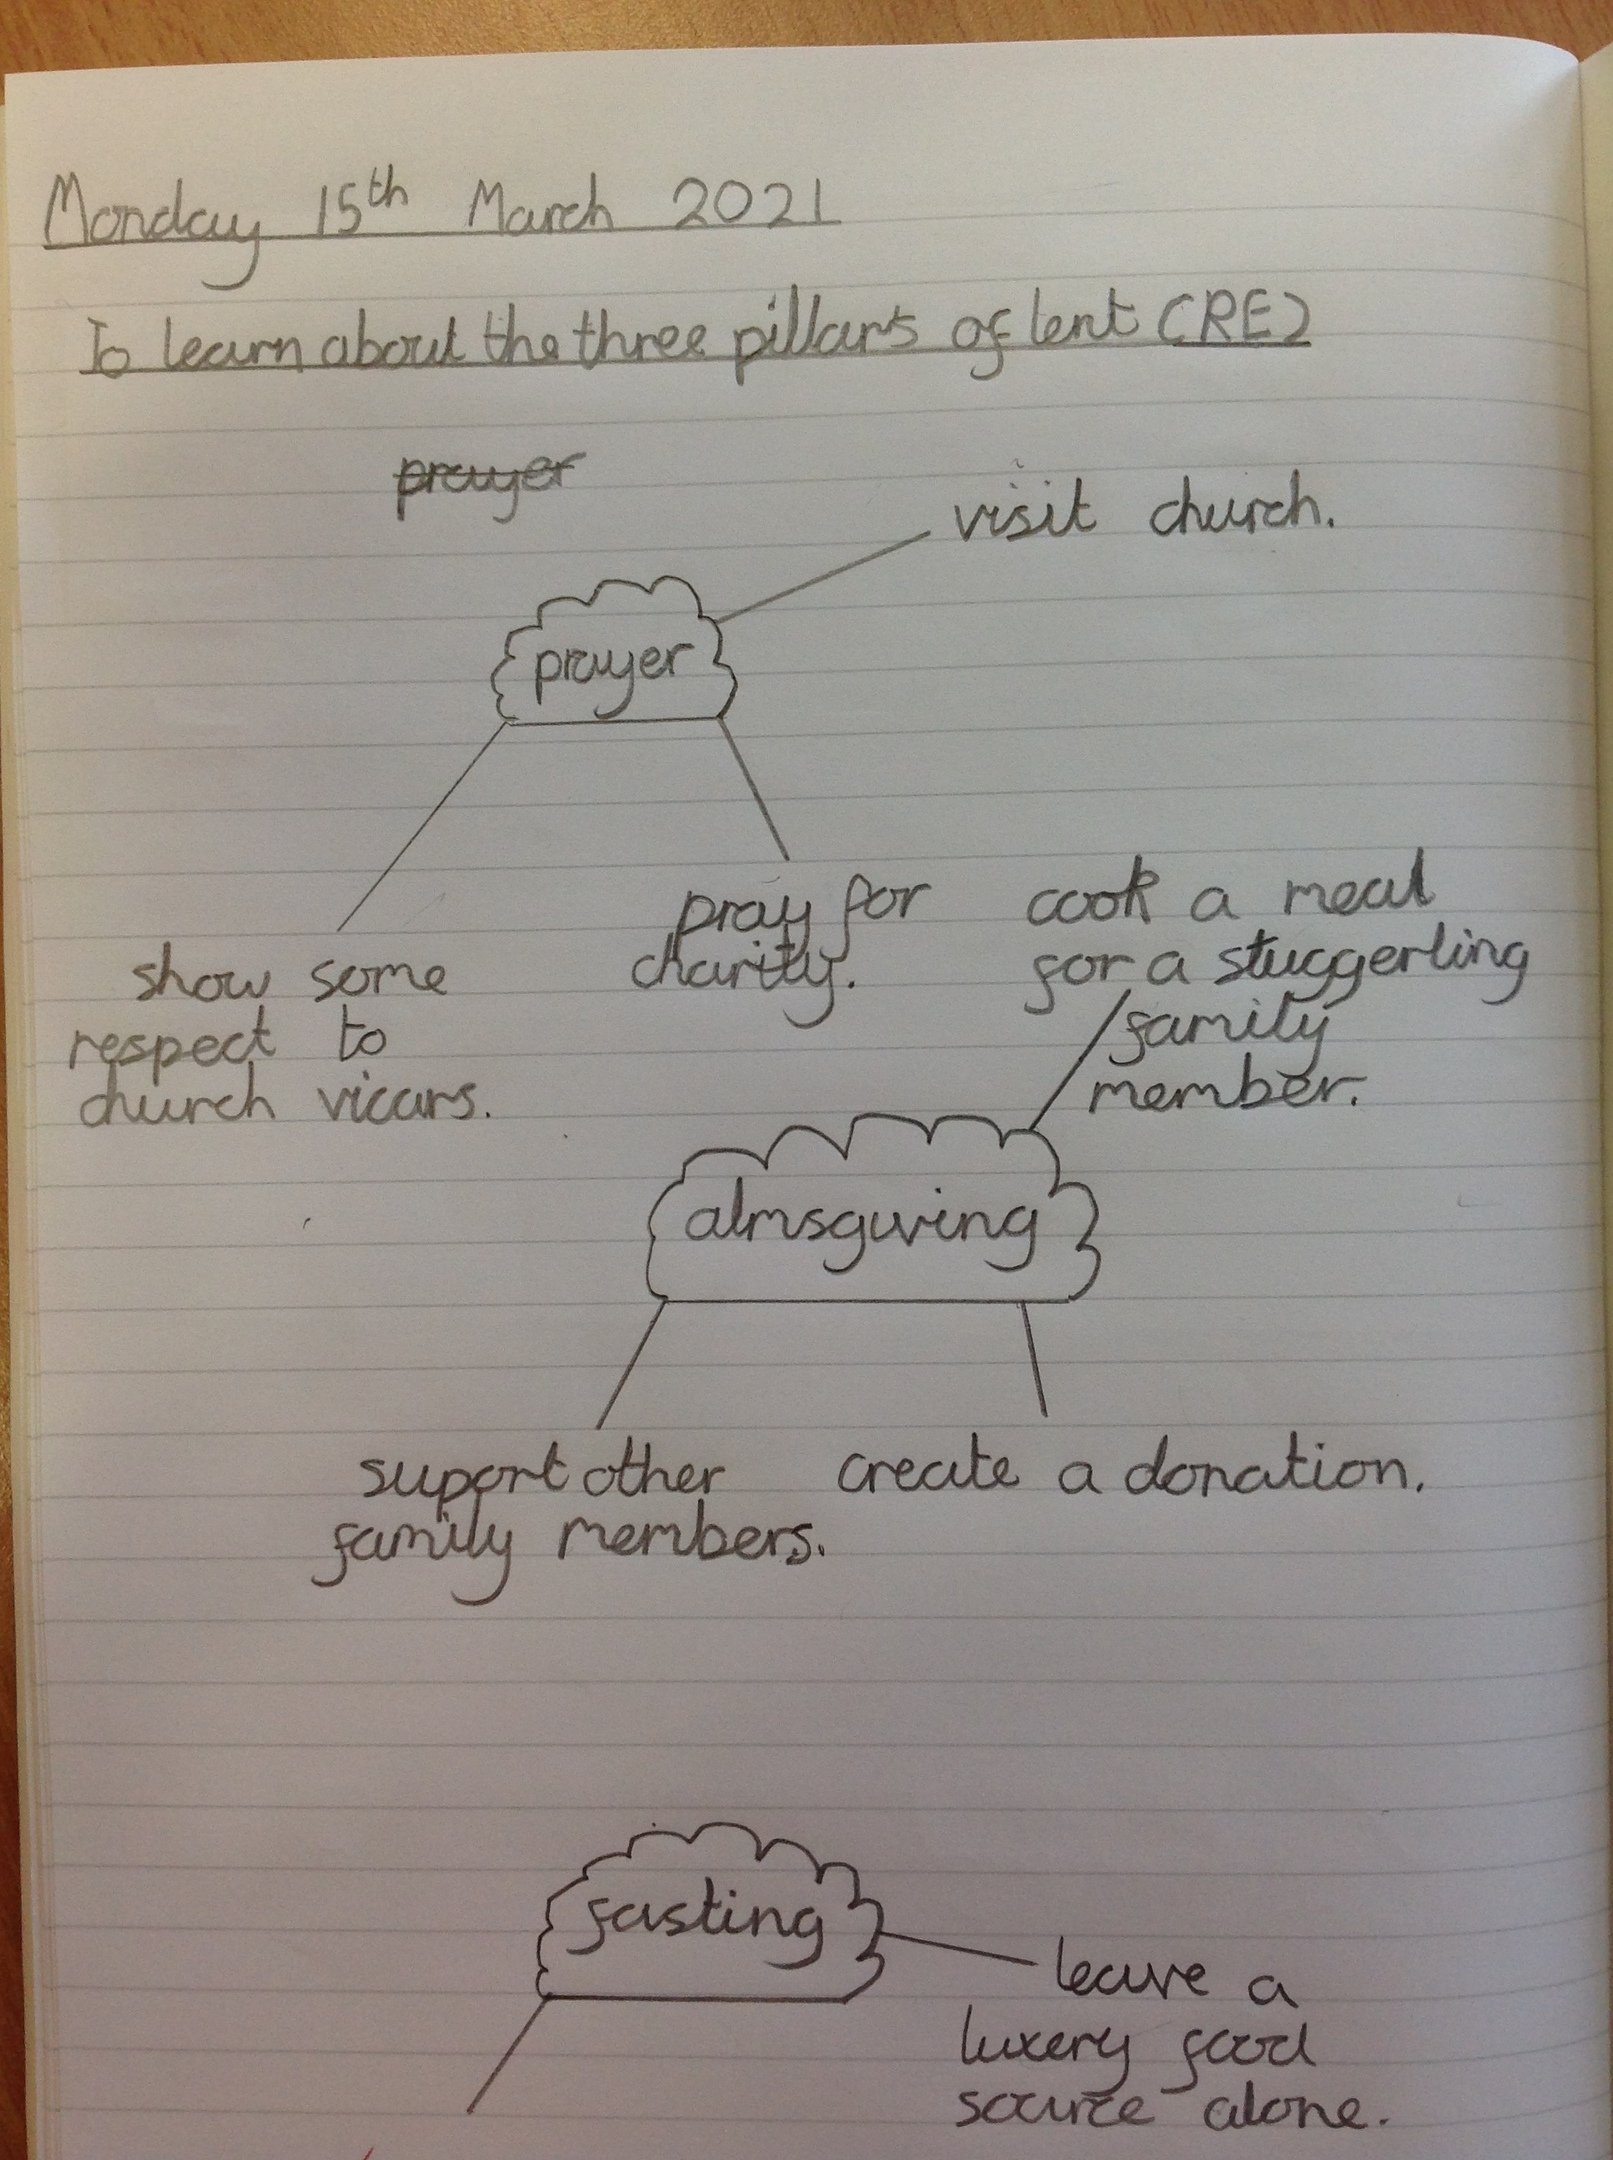 Monday 15th March 2021
To learn about the three pillars of lent (RE)
prayer
visit church.
prayer
show some
respect to
church vicars.
pray for
charity.
cook a meal
for a stuggerling
family
member.
almsgiving
suport other
family members.
create a donation.
fasting
leave a
luxery food
source alone.